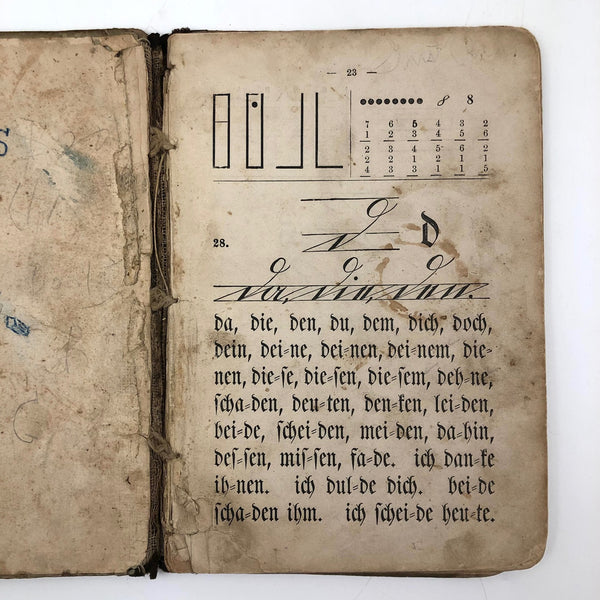 — 23 —
8 8
7 6 5 4 3 2
1 2 3 4 5 6
2 3 4 5 6 2
2 2 1 2 1 1
4 3 3 1 1 5
28.
d d
da, die, den.
da, die, den, du, dem, dich, doch,
dein, dei⸗ne, dei⸗nen, dei⸗nem, die⸗
nen, die⸗ſe, die⸗ſen, die⸗ſem, deh⸗ne,
ſcha⸗den, deu⸗ten, den⸗ken, lei⸗den,
bei⸗de, ſchei⸗den, mei⸗den, da⸗hin,
deſ⸗ſen, miſ⸗ſen, fa⸗de. ich dan⸗ke
ih⸗nen. ich dul⸗de dich. bei⸗de
ſcha⸗den ihm. ich ſchei⸗de heu⸗te.